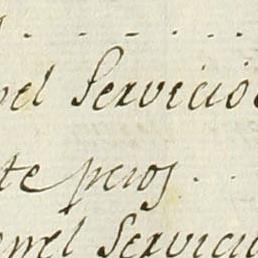 el Servicio
te pesos . .
el Servici